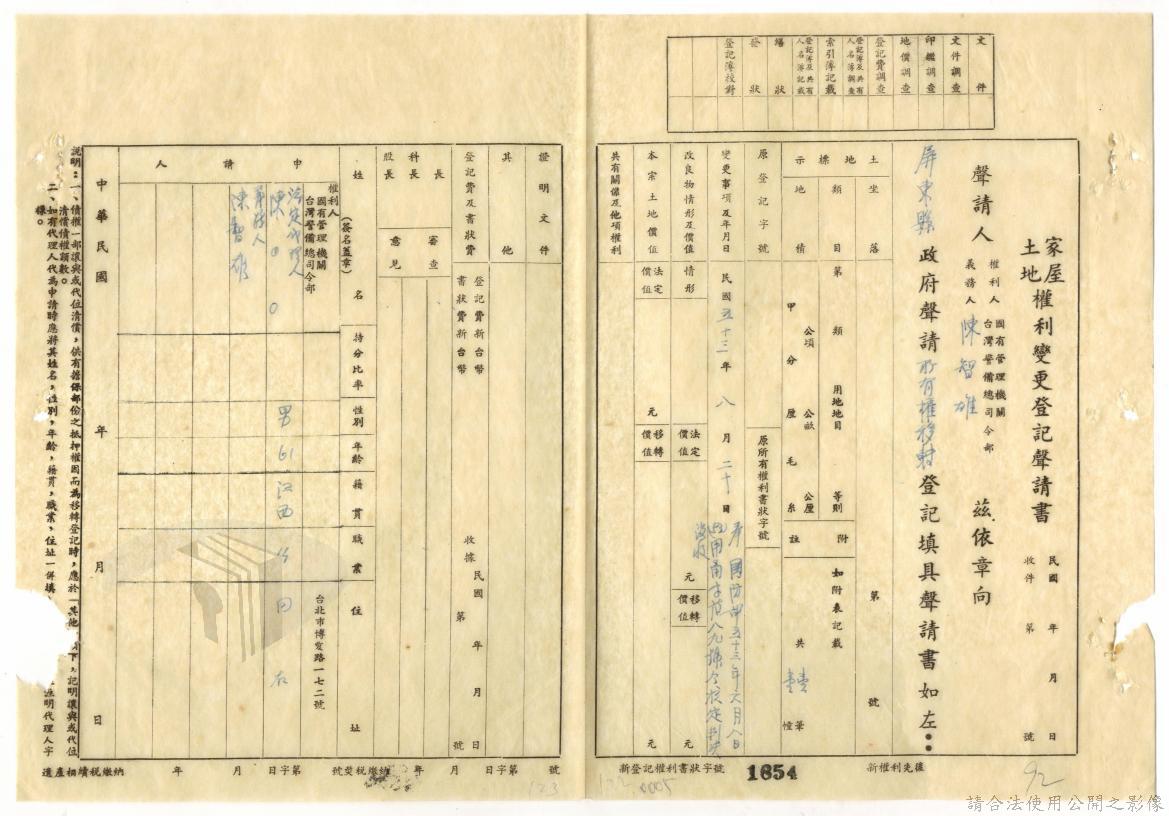 家屋
土地
權利變更登記聲請書
民國 年 月 日
收件 第 號
聲請人
權利人 國有管理機關
台灣警備總司令部
義務人 陳智雄
茲依章向
屏東縣政府聲請所有權移轉登記填具聲請書如左：
文件
文件調查
印鑑調查
地價調查
登記費調查
登記簿及共有人名簿調查
索引簿記載
登記簿及共有人名簿記載
繕狀
發狀
登記簿校對
土地標示
坐落
第 號
類目
第 類
用地地目
等則
地積
甲 分 厘 毛 糸
公頃 公畝 公厘
附註
如附表記載
共 筆
幢
原登記字號
原所有權利書狀字號
變更事項及年月日
民國五十三年 八 月 二十 日
改良物情形及價值
情形
法定價值 元
移轉價值 元
本宗土地價值
法定價值 元
移轉價值 元
共有關係及他項權利
新權利先後
1654
新登記權利書狀字號
92
0005
證明文件
其他
登記費及書狀費
登記費新台幣
書狀費新台幣
收據 民國 年 月 日
第 號
科長
股長
審查意見
申請人
姓名
(簽名蓋章)
持分比率
性別
年齡
籍貫
職業
住址
權利人
國有管理機關
台灣警備總司令部
台北市博愛路一七二號
法定代理人
陳
男 61 江西 公 同右
義務人
陳智雄
中華民國 年 月 日
說明：一、債權一部讓與或代位清償，供有擔保部份之抵押權因而為移轉登記時，應於「其他」
下，記明讓與或代位
清償債權額數。
二、如有代理人代為申請時應將其姓名，性別，年齡，籍貫，職業，住址一併填
註明代理人字
樣。
號 第 字 日 月 年
遺產相續稅繳納 年 月 日 字 第
123
請合法使用公開之影像